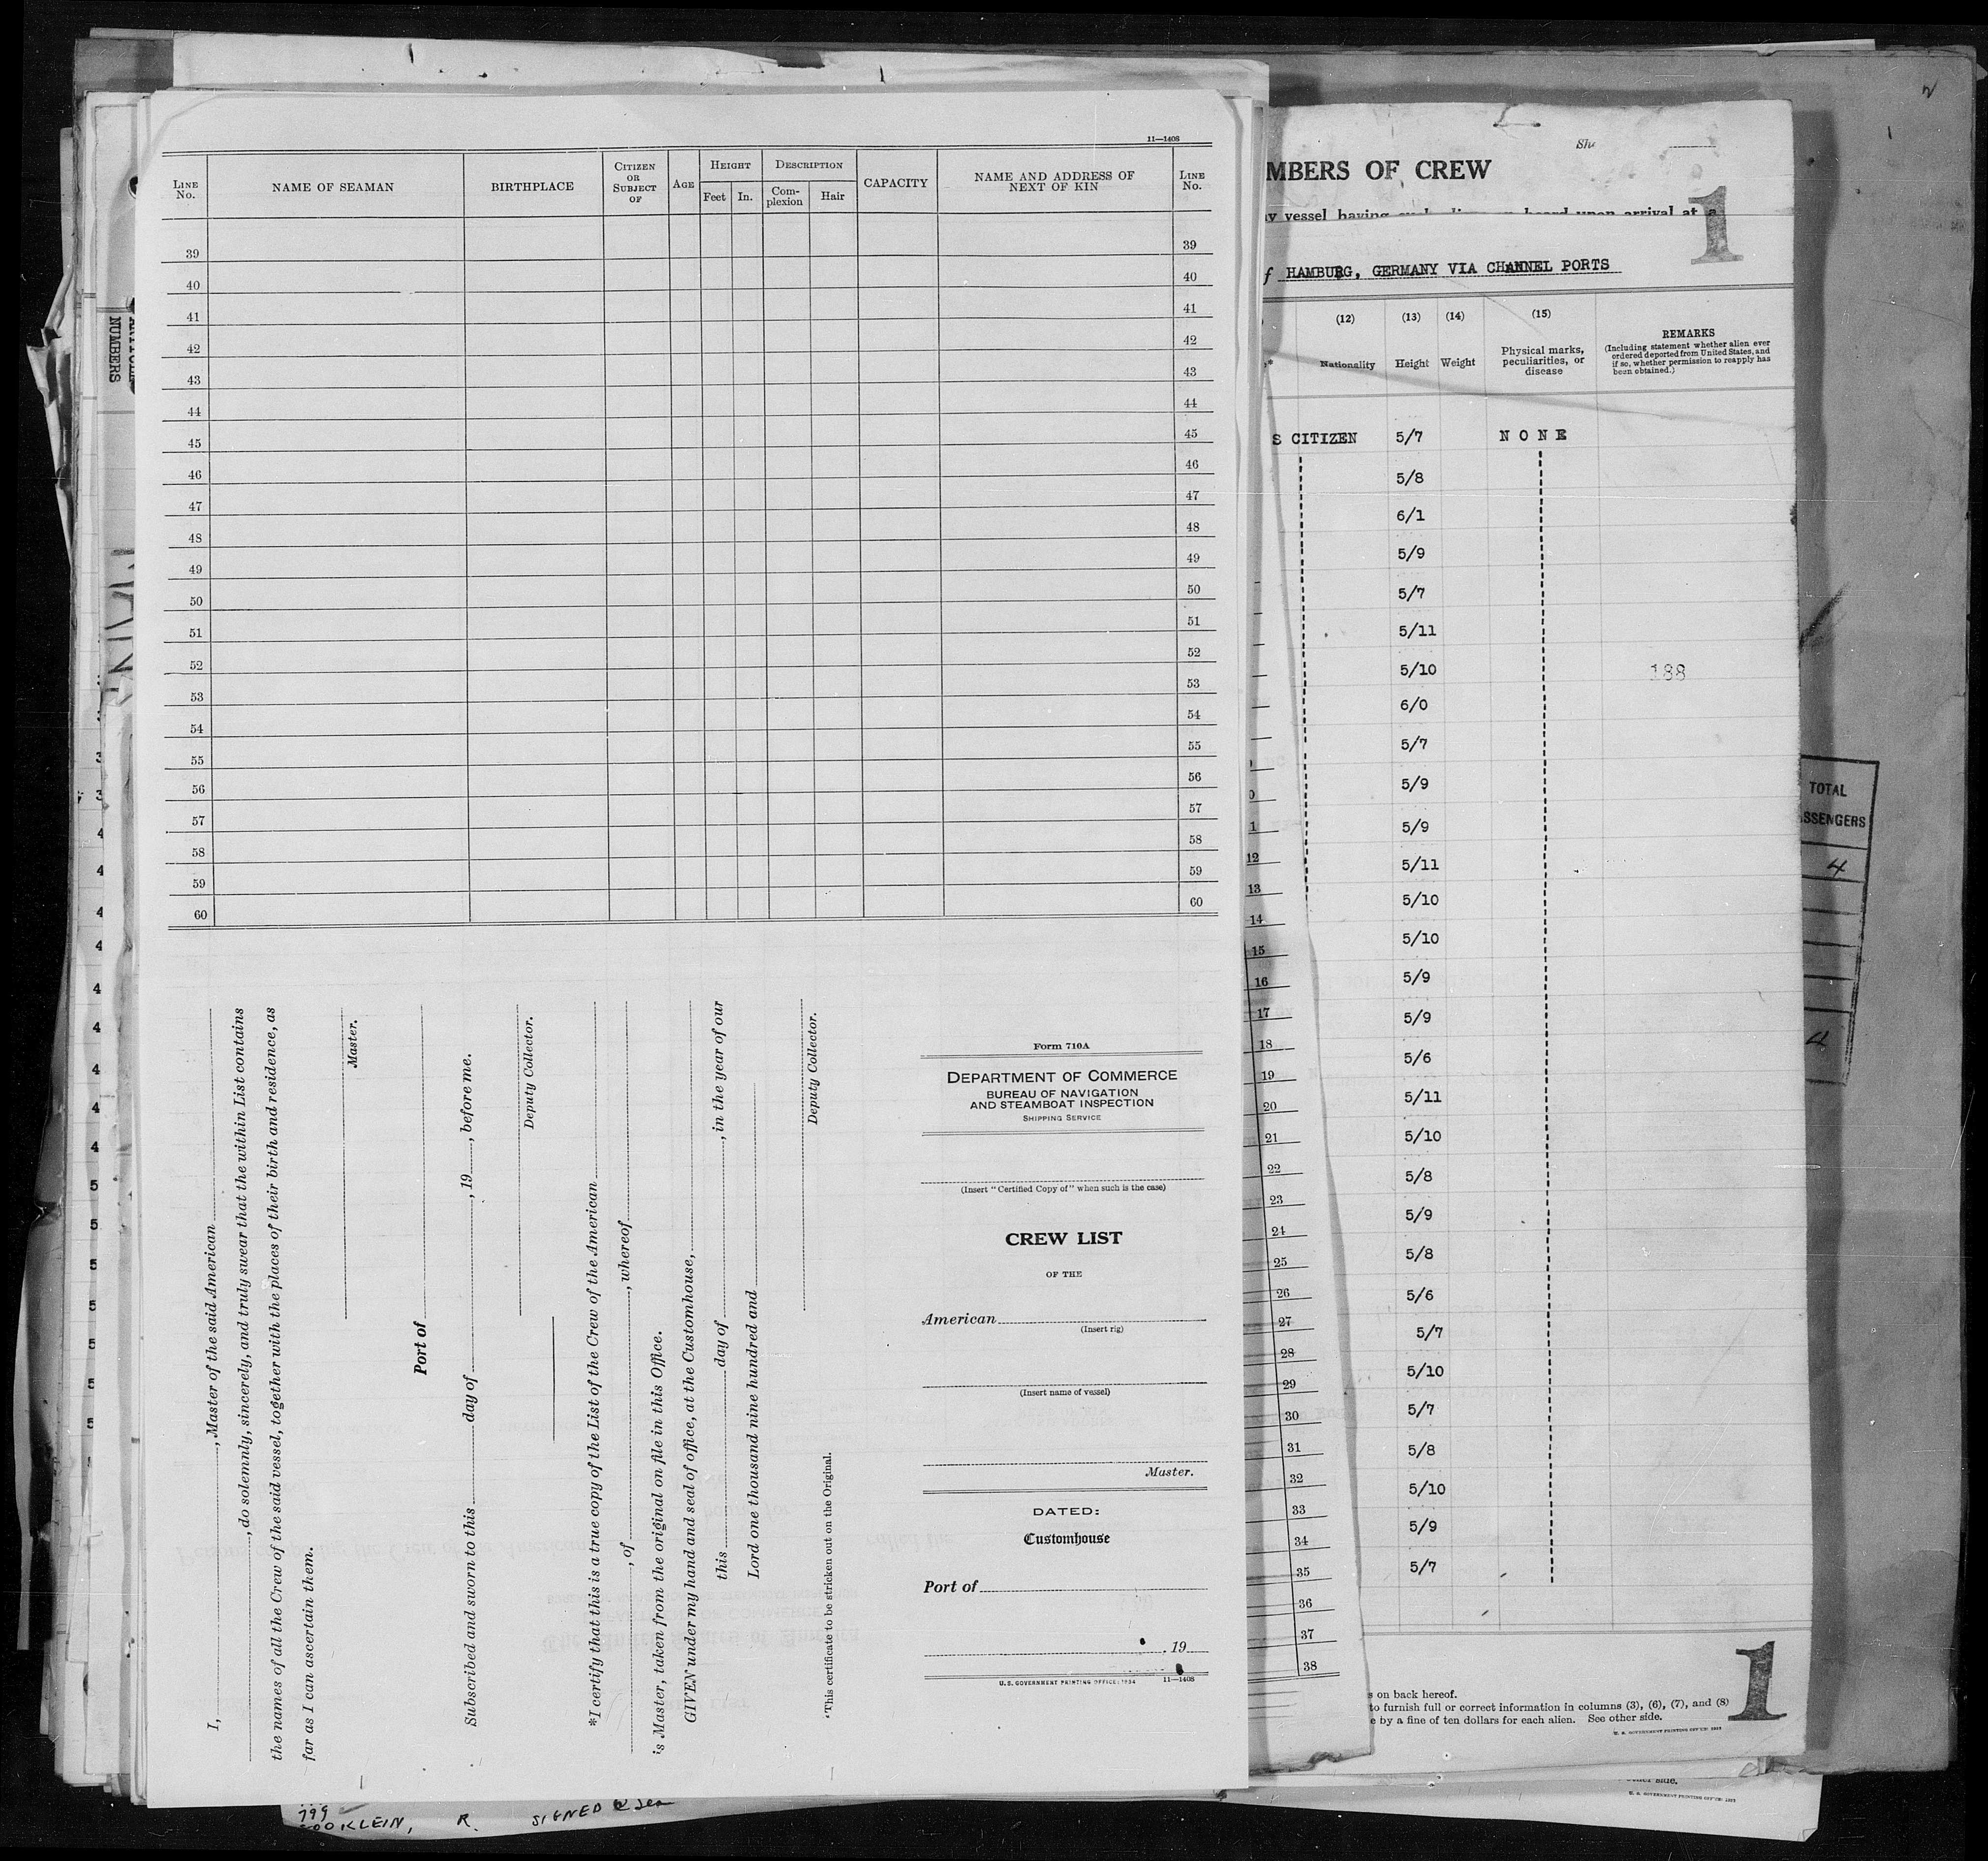 11—1408
LINE No. NAME OF SEAMAN BIRTHPLACE CITIZEN OR SUBJECT OF AGE HEIGHT Feet In. DESCRIPTION Com-plexion Hair CAPACITY NAME AND ADDRESS OF NEXT OF KIN LINE No.
39 39
40 40
41 41
42 42
43 43
44 44
45 45
46 46
47 47
48 48
49 49
50 50
51 51
52 52
53 53
54 54
55 55
56 56
57 57
58 58
59 59
60 60
I, , Master of the said American
, do solemnly, sincerely, and truly swear that the within List contains
the names of all the Crew of the said vessel, together with the places of their birth and residence, as
far as I can ascertain them.
Master.
Port of
Subscribed and sworn to this day of , 19 , before me.
Deputy Collector.
*I certify that this is a true copy of the List of the Crew of the American
, of , whereof
is Master, taken from the original on file in this Office.
GIVEN under my hand and seal of office, at the Customhouse,
this day of , in the year of our
Lord one thousand nine hundred and
Deputy Collector.
*This certificate to be stricken out on the Original.
Form 710A
DEPARTMENT OF COMMERCE
BUREAU OF NAVIGATION
AND STEAMBOAT INSPECTION
SHIPPING SERVICE
(Insert "Certified Copy of" when such is the case)
CREW LIST
OF THE
American
(Insert rig)
(Insert name of vessel)
Master.
DATED:
Customhouse
Port of
, 19
U. S. GOVERNMENT PRINTING OFFICE: 1934 11—1408
MBERS OF CREW
vessel having arrival at a
1
f HAMBURG, GERMANY VIA CHANNEL PORTS
(12) (13) (14) (15)
Nationality Height Weight Physical marks, peculiarities, or disease
REMARKS
(Including statement whether alien ever
ordered deported from United States, and
if so, whether permission to reapply has
been obtained.)
S CITIZEN 5/7 N O N E
5/8
6/1
5/9
5/7
5/11
5/10 188
6/0
5/7
5/9
5/9
5/11
5/10
5/10
5/9
5/9
5/6
5/11
5/10
5/8
5/9
5/8
5/6
5/7
5/10
5/7
5/8
5/10
5/9
5/7
12
13
14
15
16
17
18
19
20
21
22
23
24
25
26
27
28
29
30
31
32
33
34
35
36
37
38
s on back hereof.
to furnish full or correct information in columns (3), (6), (7), and (8)
e by a fine of ten dollars for each alien. See other side.
1
TOTAL
SSENGERS
4
4
NUMBERS
799
KLEIN, R. SIGNED @ Sea